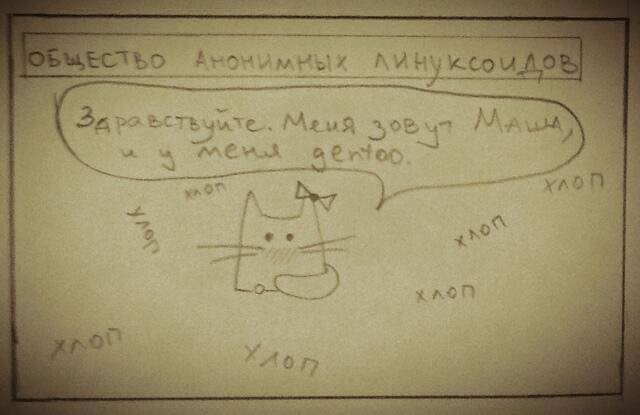 ОБЩЕСТВО АНОНИМНЫХ ЛИНУКСОИДОВ
Здравствуйте. Меня зовут Маша,
и у меня gentoo.
ХЛОП
ХЛОП
ХЛОП
ХЛОП
ХЛОП
ХЛОП
ХЛОП